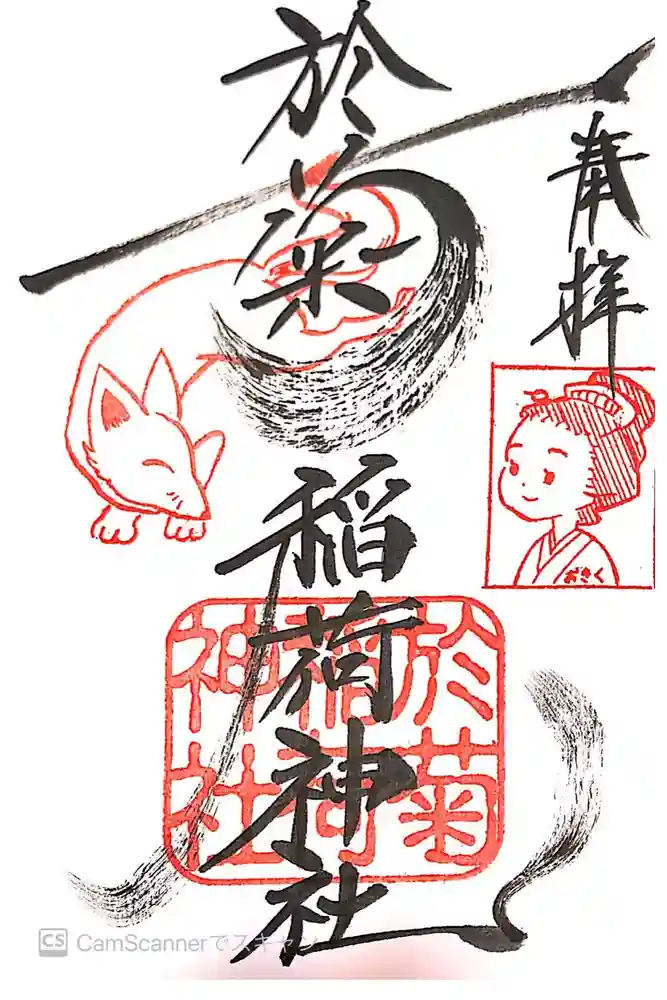 奉拝
於菊稲荷神社
おきく
於菊
稲荷
神社
CS CamScannerでスキャン